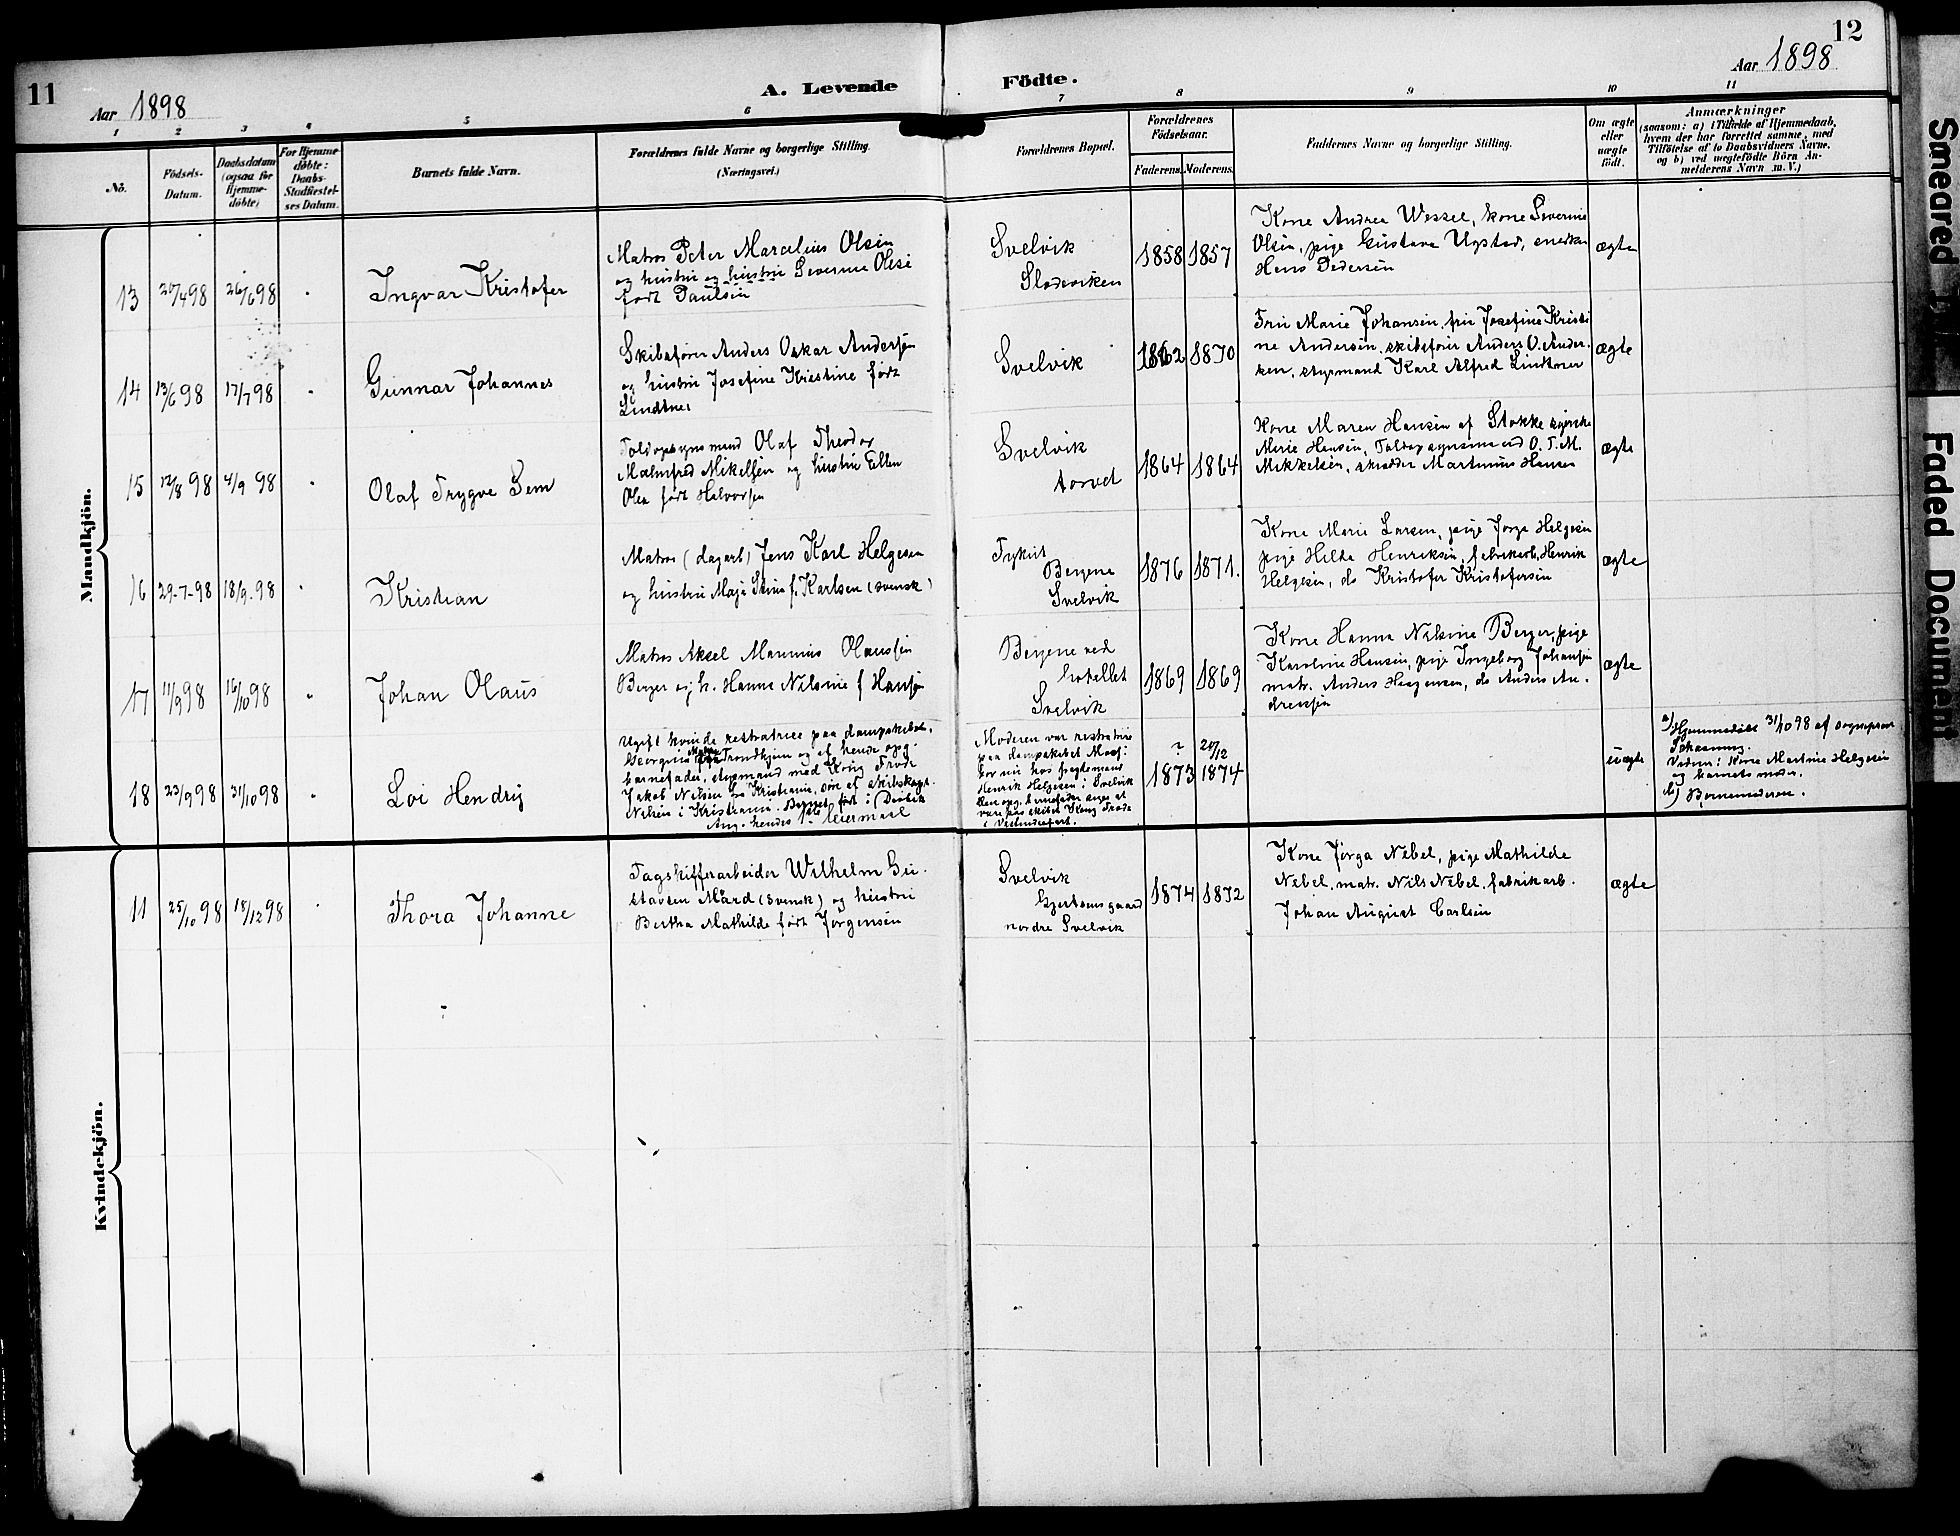 11
Aar 1898
A. Levende
1
2
3
4
5
6
No.
Födsels-
Datum.
Daabsdatum
(ogsaa for
Hjemme-
döbte)
For Hjemme-
döbte:
Daabs-
Stadfæstel-
ses Datum.
Barnets fulde Navn.
Forældrenes fulde Navne og borgerlige Stilling.
(Næringsvei.)
Mandkjön.
13
20/4 98
26/6 98
Ingvar Kristofer
Matros Peter Marcelius Olsen
og hustru og hustru Severine Olse
født Paulsen
14
13/6 98
17/7 98
Gunnar Johannes
Skibsfører Anders Oskar Andersen
og hustru Josefine Kristine født
Lindtner
15
12/8 98
4/9 98
Olaf Trygve Sem
Toldopsynsmand Olaf Theodor
Malmfred Mikelsen og hustru Ellen
Olea født Halvorsen
16
29-7-98
18/9-98
Kristian
Matros (dagarb) Jens Karl Helgesen
og hustru Maja Stina f. Karlsen (svensk)
17
11/9 98
16/10 98
Johan Olaus
Matros Aksel Marinius Olaussen
Berger og h. Hanna Nilsine f Hansen
18
23/9 98
31/10 98
Loi Hendrij
Ugift kvinde restratrice paa dampskibet
Georgine Trondhjem og af hende opg.
barnefader, styrmand med Kong Frode
Jakob Nilsen fra Kristiania, søn af skibskapt.
Nilsen i Kristiania. Barnet født i
Ang. hendes 1ste leiermaal
Kvindekjön.
11
25/10 98
18/12 98
Thora Johanne
Tagskifferarbeider Wilhelm Gu-
stavsen Mård (svensk) og hustru
Bertha Mathilde født Jørgensen
12
Aar 1898
Födte.
7
8
9
10
11
Forældrenes Bopæl.
Forældrenes
Födselsaar.
Faderens.
Moderens.
Faddernes Navne og borgerlige Stilling.
Om ægte
eller
uægte
födt.
Anmærkninger
(saasom: a) i Tilfælde af Hjemmedaab,
hvem der har forrettet samme, med
Tilföielse af to Daabsvidners Navne,
og b) ved uægtefödte Börn An-
melderens Navn m. V.)
Svelvik
1858
1857
Kone Andrea Wessel, kone Severine
Olsen, pige Gustava Ugstad, snedker
Hans Pedersen
ægte
Svelvik
1862
1870
Fru Marie Johansen, fru Josefine Kristi
ne Andersen, skibsfører Anders O. Ander-
sen, styrmand Karl Alfred Lindtner
ægte
Svelvik
torvet
1864
1864
Kone Maren Hansen af Stokke
Marie Hansen, Toldopsynsmand O. T. M.
Mikkelsen, skrædder Martinius Hansen
ægte
Bergene
Svelvik
1876
1871.
Kone Marie Larsen, pige Jørga Helgesen
pige Hilda Henriksen, fabrikarb. Henrik
Helgesen, do Kristofer Kristofersen
ægte
Bergene ved
hotellet
Svelvik
1869
1869
Kone Hanna Nilsine Berger, pige
Karoline Hansen, pige Ingeborg Johansen
matr. Anders Haagensen, do Anders An-
dreasen
ægte
Moderen var restratrice
paa dampskibet
for nu hos fragtemand
Henrik Helgesen i Svelvik
Den opg. barnefader siges at
være paa skibet Kong Frode
i Vestindiefart.
?
1873
21/12
1874
uægte
a) Hjemmedøbt 31/10 98 af sogneprest
Johannung.
Vidner: Kone Martine Helgesen
og barnets moder.
b) Barnemoderen.
Svelvik
nordre Svelvik
1874
1872
Kone Jørga Nebel, pige Mathilde
Nebel, matr. Nils Nebel, fabrikarb.
Johan August Carlsen
ægte
Smeared
Faded Document